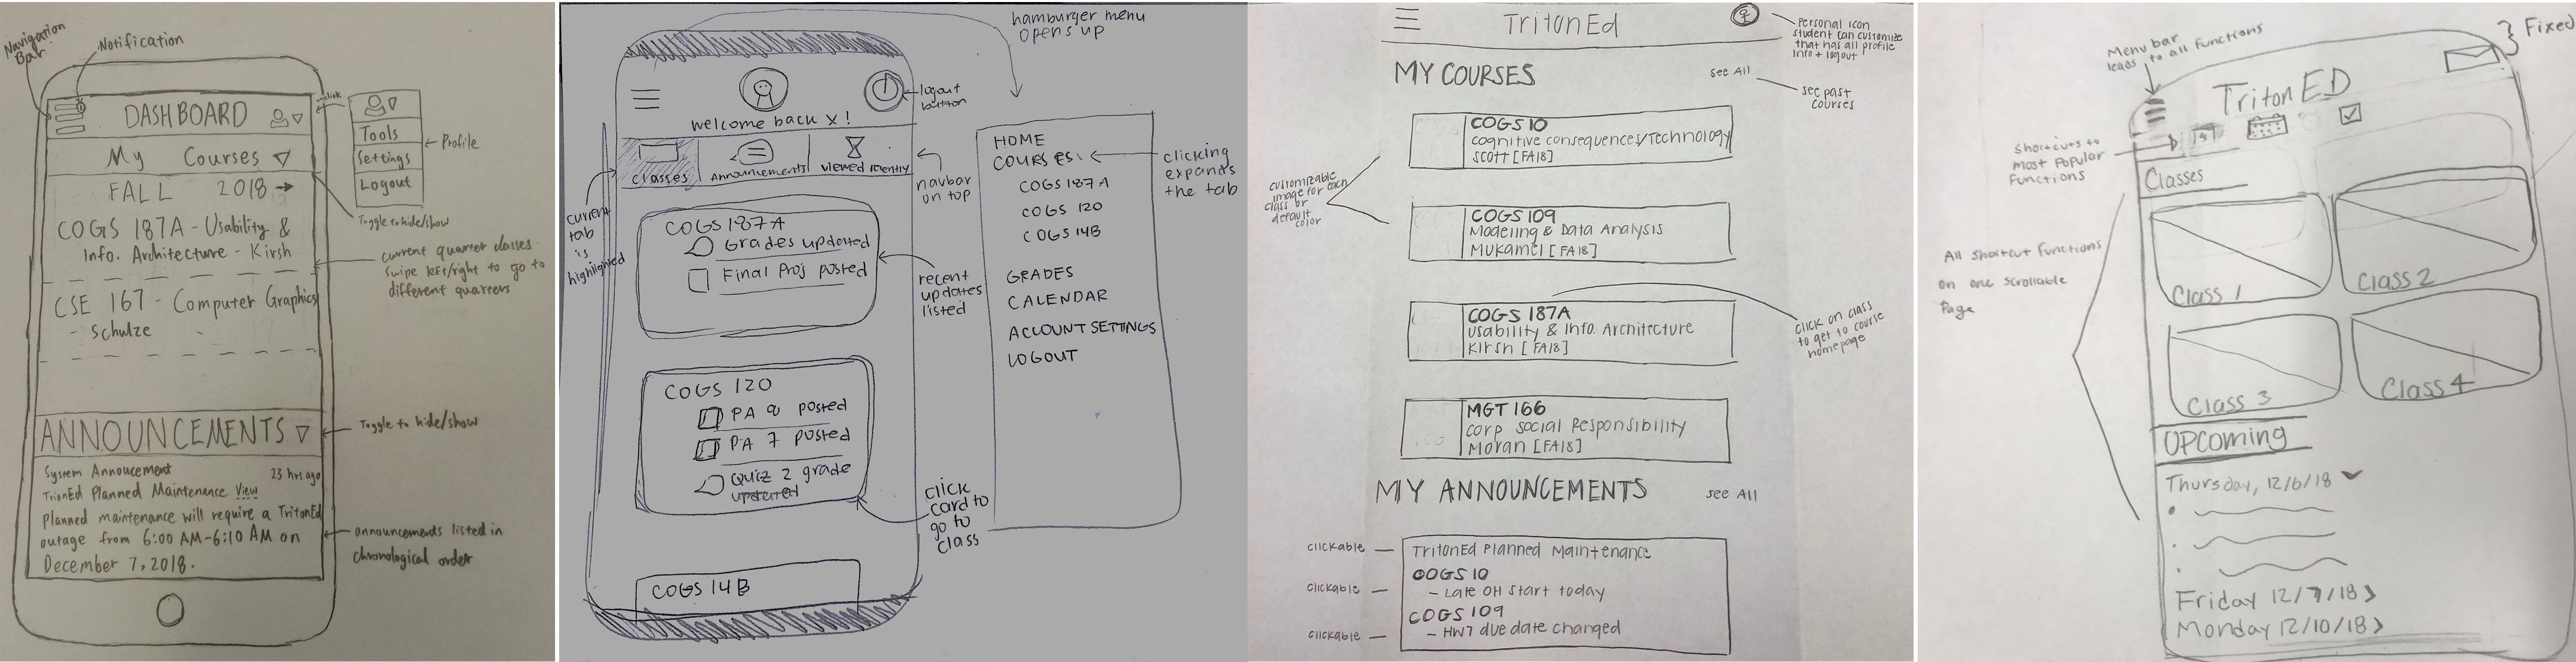 Navigation
Bar
Notification
DASHBOARD
click
Tools
Settings
Logout
Profile
My Courses
FALL 2018
Toggle to hide/show
COGS 187A - Usability &
Info. Architecture - Kirsh
current quarter classes.
Swipe left/right to go to
different quarters
CSE 167 - Computer Graphics
- Schulze
ANNOUNCEMENTS
Toggle to hide/show
System Annoucement 23 hrs ago
TrionEd Planned Maintenance View
Planned maintenance will require a TritonEd
outage from 6:00 AM-6:10 AM on
December 7, 2018.
announcements listed in
chronological order
hamburger menu
opens up
logout
button
welcome back x!
classes
Announcements
viewed recently
navbar
on top
current
tab
is
highlighted
COGS 187A
Grades updated
Final Proj posted
recent
updates
listed
COGS 120
PA 8 posted
PA 7 posted
Quiz 2 grade
updated
click
card to
go to
class
COGS 14B
HOME
COURSES
COGS 187A
COGS 120
COGS 14B
GRADES
CALENDAR
ACCOUNT SETTINGS
LOGOUT
clicking
expands
the tab
TritonEd
Personal icon
student can customize
that has all profile
info + logout
MY COURSES
see All
see past
courses
COGS 10
cognitive consequences/Technology
SCOTT [FA18]
customizable
image for each
class or
default
color
COGS 109
Modeling & Data Analysis
Mukamel [FA18]
COGS 187A
Usability & Info. Architecture
Kirsh [FA18]
click on class
to get to course
homepage
MGT 166
Corp Social Responsibility
Moran [FA18]
MY ANNOUNCEMENTS
see All
clickable
TritonEd Planned Maintenance
clickable
COGS 10
- Late OH start today
clickable
COGS 109
- HW7 due date changed
Menu bar
leads to all functions
Fixed
TritonED
Shortcuts to
most Popular
Functions
Classes
Class 1
Class 2
Class 3
Class 4
All shortcut functions
on one scrollable
Page
UPcoming
Thursday, 12/6/18
Friday 12/7/18 >
Monday 12/10/18 >